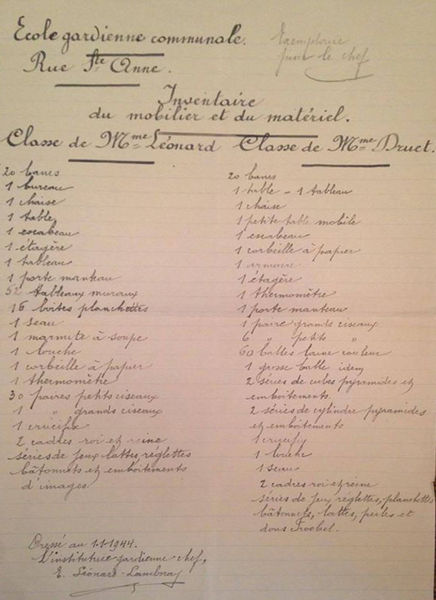 Ecole gardienne communale.
pour le chef
Rue Ste Anne.
Inventaire
du mobilier et du matériel.
Classe de Mme Léonard
20 bancs
1 bureau
1 chaise
1 table
1 escabeau
1 étagère
1 tableau
1 porte manteau
52 tableaux muraux
16 boîtes planchettes
1 seau
1 marmite à soupe
1 louche
1 corbeille à papier
1 thermomètre
30 paires petits ciseaux
1 " grands ciseaux
1 crucifix
2 cadres roi et reine
séries de jeux lattes, réglettes
bâtonnets et emboîtements
d'images
Classe de Mme Druet.
20 bancs
1 table - 1 tableau
1 chaise
1 petite table mobile
1 escabeau
1 corbeille à papier
1 armoire
1 étagère
1 thermomètre
1 porte manteau
1 paire grands ciseaux
6 " petits "
60 balles laine couleur
1 grosse balle idem
2 séries de cubes pyramides et
emboîtements.
2 séries de cylindre pyramides
et emboîtements
1 crucifix
1 louche
1 seau
2 cadres roi et reine
séries de jeux, réglettes, planchettes
bâtonnets, lattes, perles et
dons Froebel.
Dressé au 1.1.1944.
L'institutrice gardienne chef,
E. Léonard-